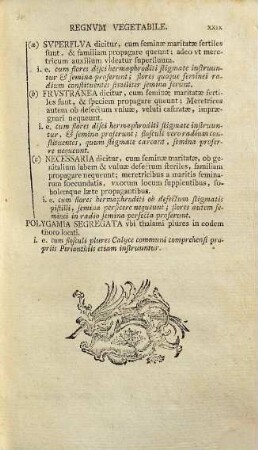 REGNVM VEGETABILE. XXIX
(a) SVPERFLVA dicitur, cum feminæ maritatæ fertiles
sunt, & familiam propagare queunt; adeo vt mere-
tricum auxilium videatur superfluum.
i. e. cum flores disci hermaphroditi stigmate instruun-
tur & semina proferunt; flores quoque feminei ra-
dium constituentes similiter semina ferunt.
(b) FRVSTRANEA dicitur, cum feminæ maritatæ fertiles
sunt, & speciem propagare queunt; Meretrices
autem ob defectum vulvæ, veluti castratæ, impræ-
gnari nequeunt;
i. e. cum flores disci hermaphroditi stigmate instruun-
tur, & semina proferunt; flosculi vero radium con-
stituentes, quum stigmate careant, semina profer-
re nequeunt.
(c) NECESSARIA dicitur, cum feminæ maritatæ, ob ge-
nitalium labem & vulvæ defectum steriles, familiam
propagare nequeunt; meretricibus a maritis femina-
rum foecundatis, vxorum locum supplentibus, so-
bolemque læte propagantibus.
i. e. cum flores hermaphroditi ob defectum stigmatis
pistilli, semina perficere nequeunt; flores autem fe-
minei in radio semina perfecta proferunt.
POLYGAMIA SEGREGATA vbi thalami plures in eodem
thoro locati.
i. e. cum flosculi plures Calyce communi comprehensi pro-
priis Perianthiis etiam instruuntur.